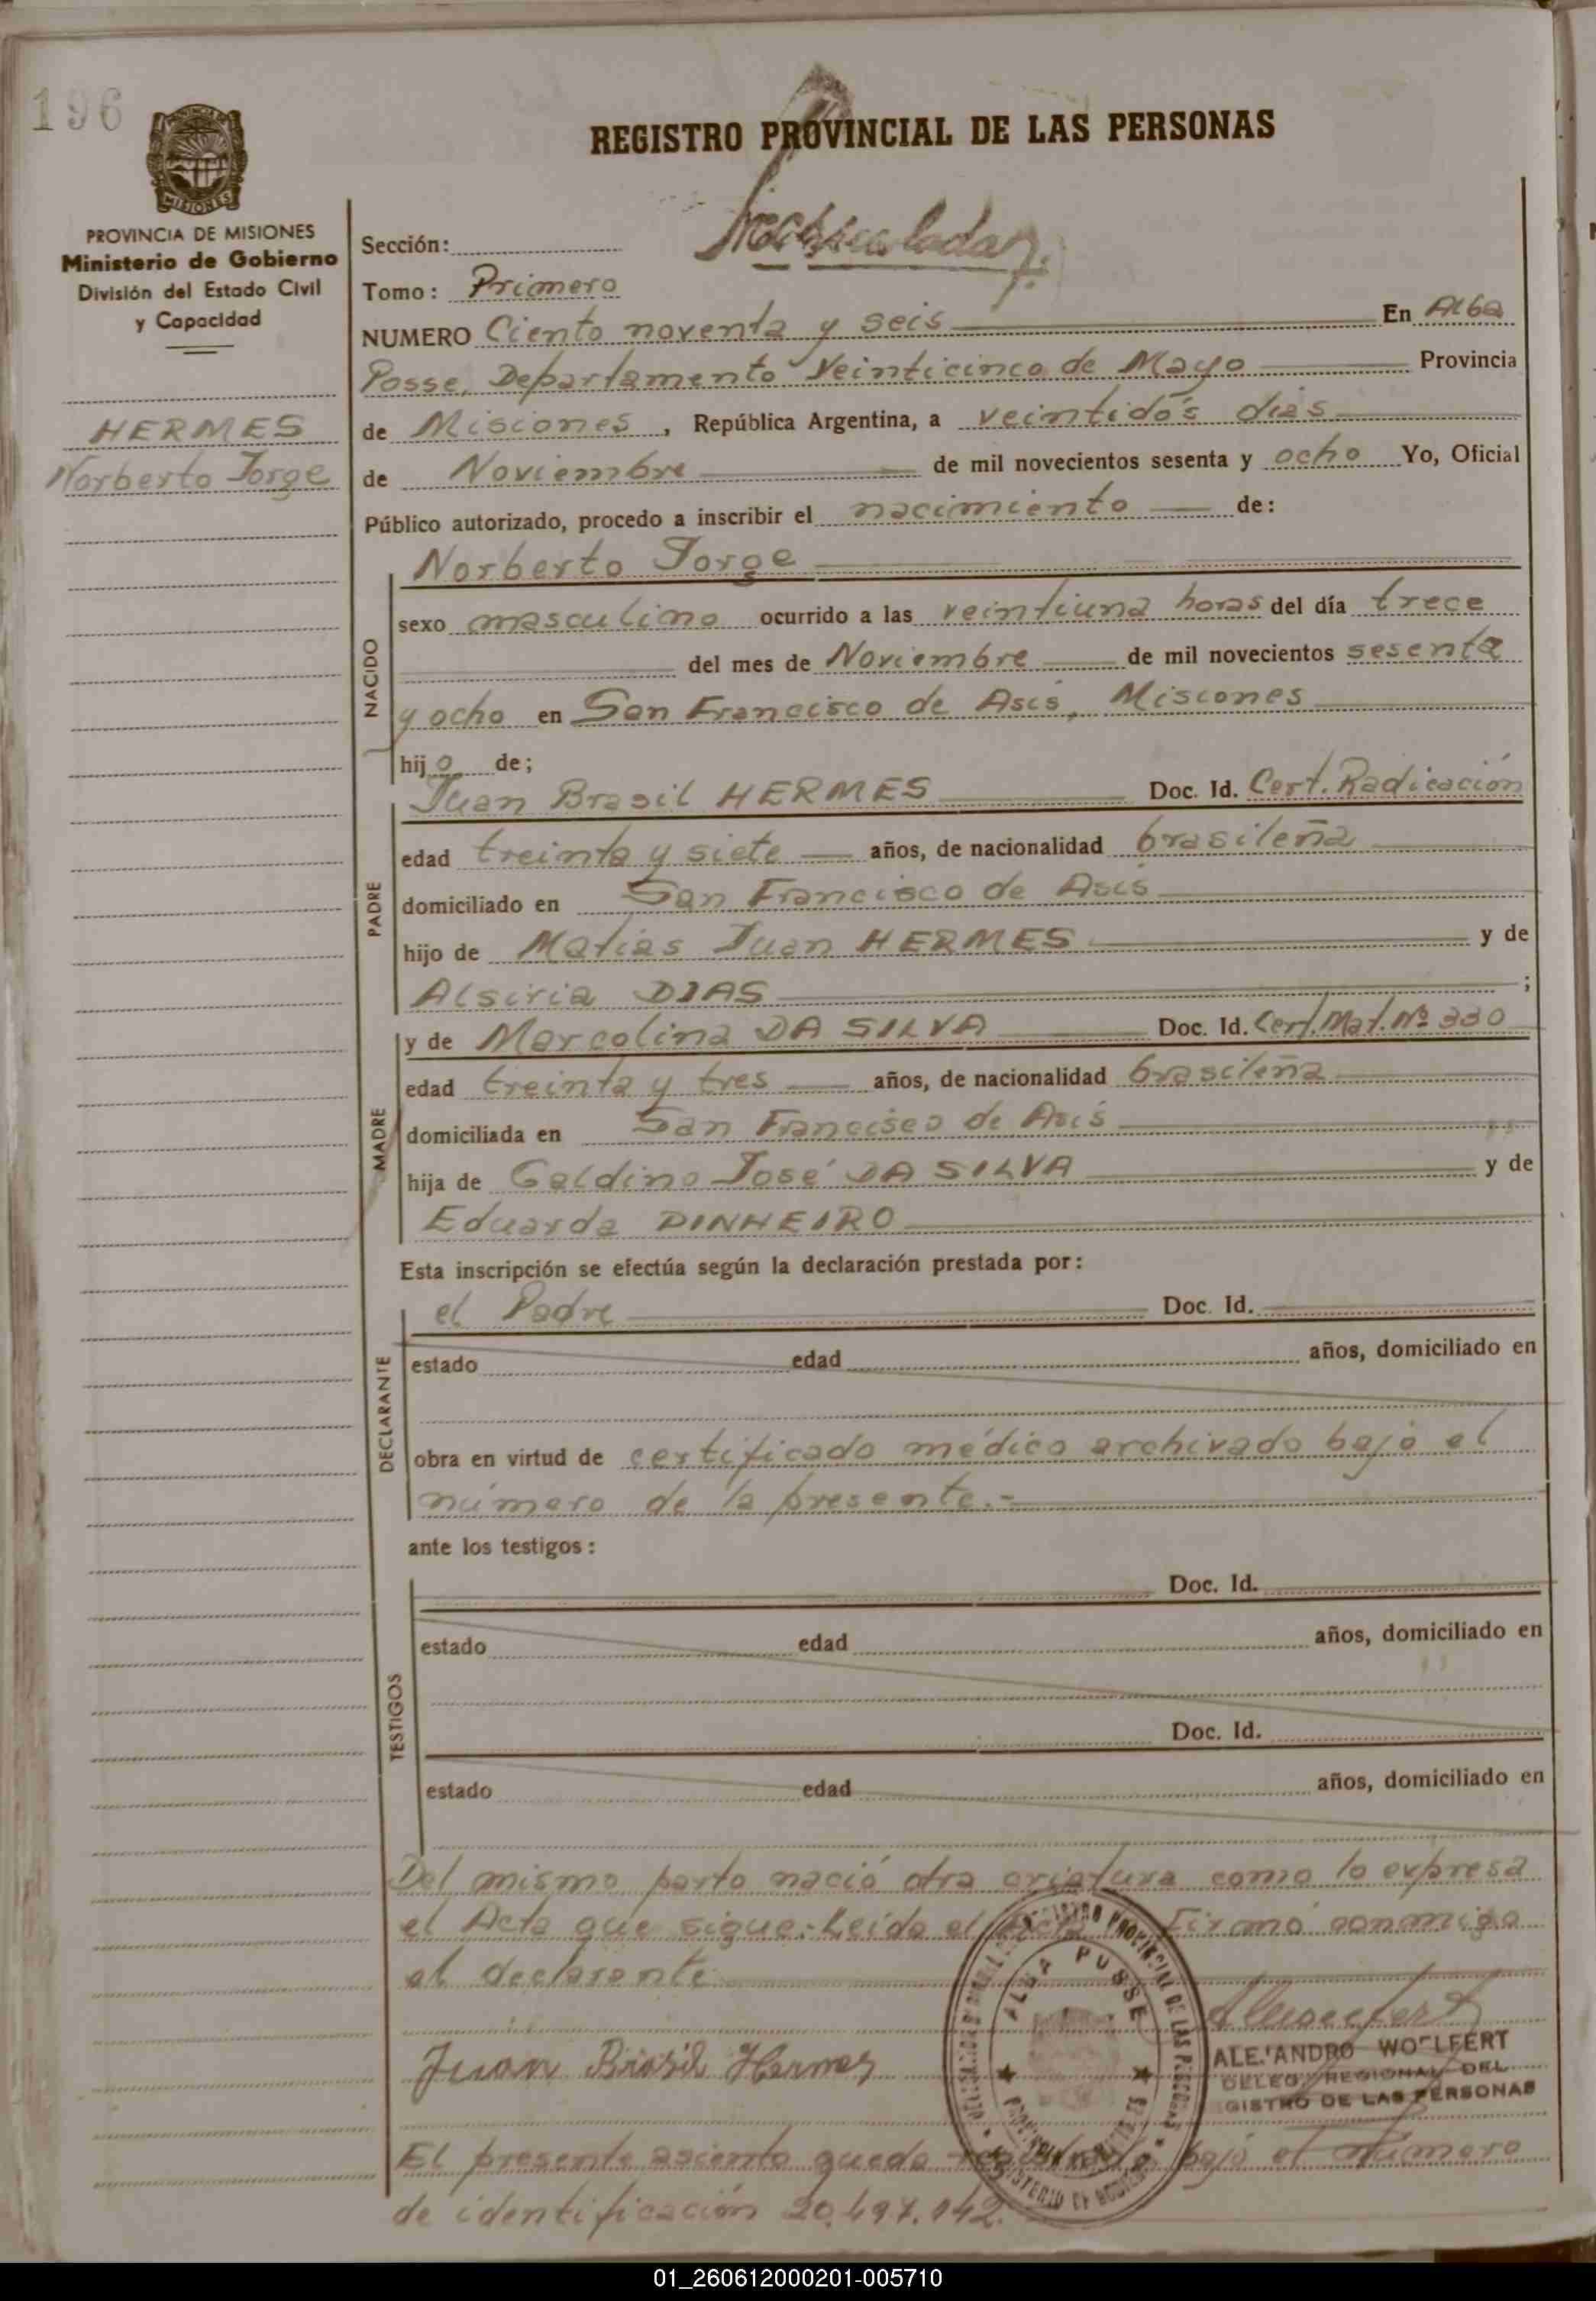 196
REGISTRO PROVINCIAL DE LAS PERSONAS
MISIONES
PROVINCIA DE MISIONES
Ministerio de Gobierno
División del Estado Civil
y Capacidad
HERMES
Norberto Jorge
Sección:
Tomo: Primero
NUMERO Ciento noventa y seis En Alba
Posse, Departamento Veinticinco de Mayo Provincia
de Misiones, República Argentina, a veintidós días
de Noviembre de mil novecientos sesenta y ocho Yo, Oficial
Público autorizado, procedo a inscribir el nacimiento de:
NACIDO
Norberto Jorge
sexo masculino ocurrido a las veintiuna horas del día trece
del mes de Noviembre de mil novecientos sesenta
y ocho en San Francisco de Asís, Misiones
hijo de;
PADRE
Juan Brasil HERMES Doc. Id. Cert. Radicación
edad treinta y siete años, de nacionalidad brasileña
domiciliado en San Francisco de Asís
hijo de Matías Juan HERMES y de
Alsiria DIAS ;
MADRE
y de Marcolina DA SILVA Doc. Id. Cert. Mat. Nº 330
edad treinta y tres años, de nacionalidad brasileña
domiciliada en San Francisco de Asís
hija de Galdino José DA SILVA y de
Eduarda PINHEIRO
Esta inscripción se efectúa según la declaración prestada por:
DECLARANTE
el Padre Doc. Id.
estado edad años, domiciliado en
obra en virtud de certificado médico archivado bajo el
número de la presente.-
ante los testigos:
TESTIGOS
Doc. Id.
estado edad años, domiciliado en
Doc. Id.
estado edad años, domiciliado en
Del mismo parto nació otra criatura como lo expresa
el Acta que sigue. Leída el Firmó conmigo
el declarante
ALBA POSSE
Juan Brasil Hermes
ALEJANDRO WOLFERT
DELEG. REGIONAL DEL
REGISTRO DE LAS PERSONAS
El presente asiento queda bajo el número
de identificación 20.497.142.
01_260612000201-005710